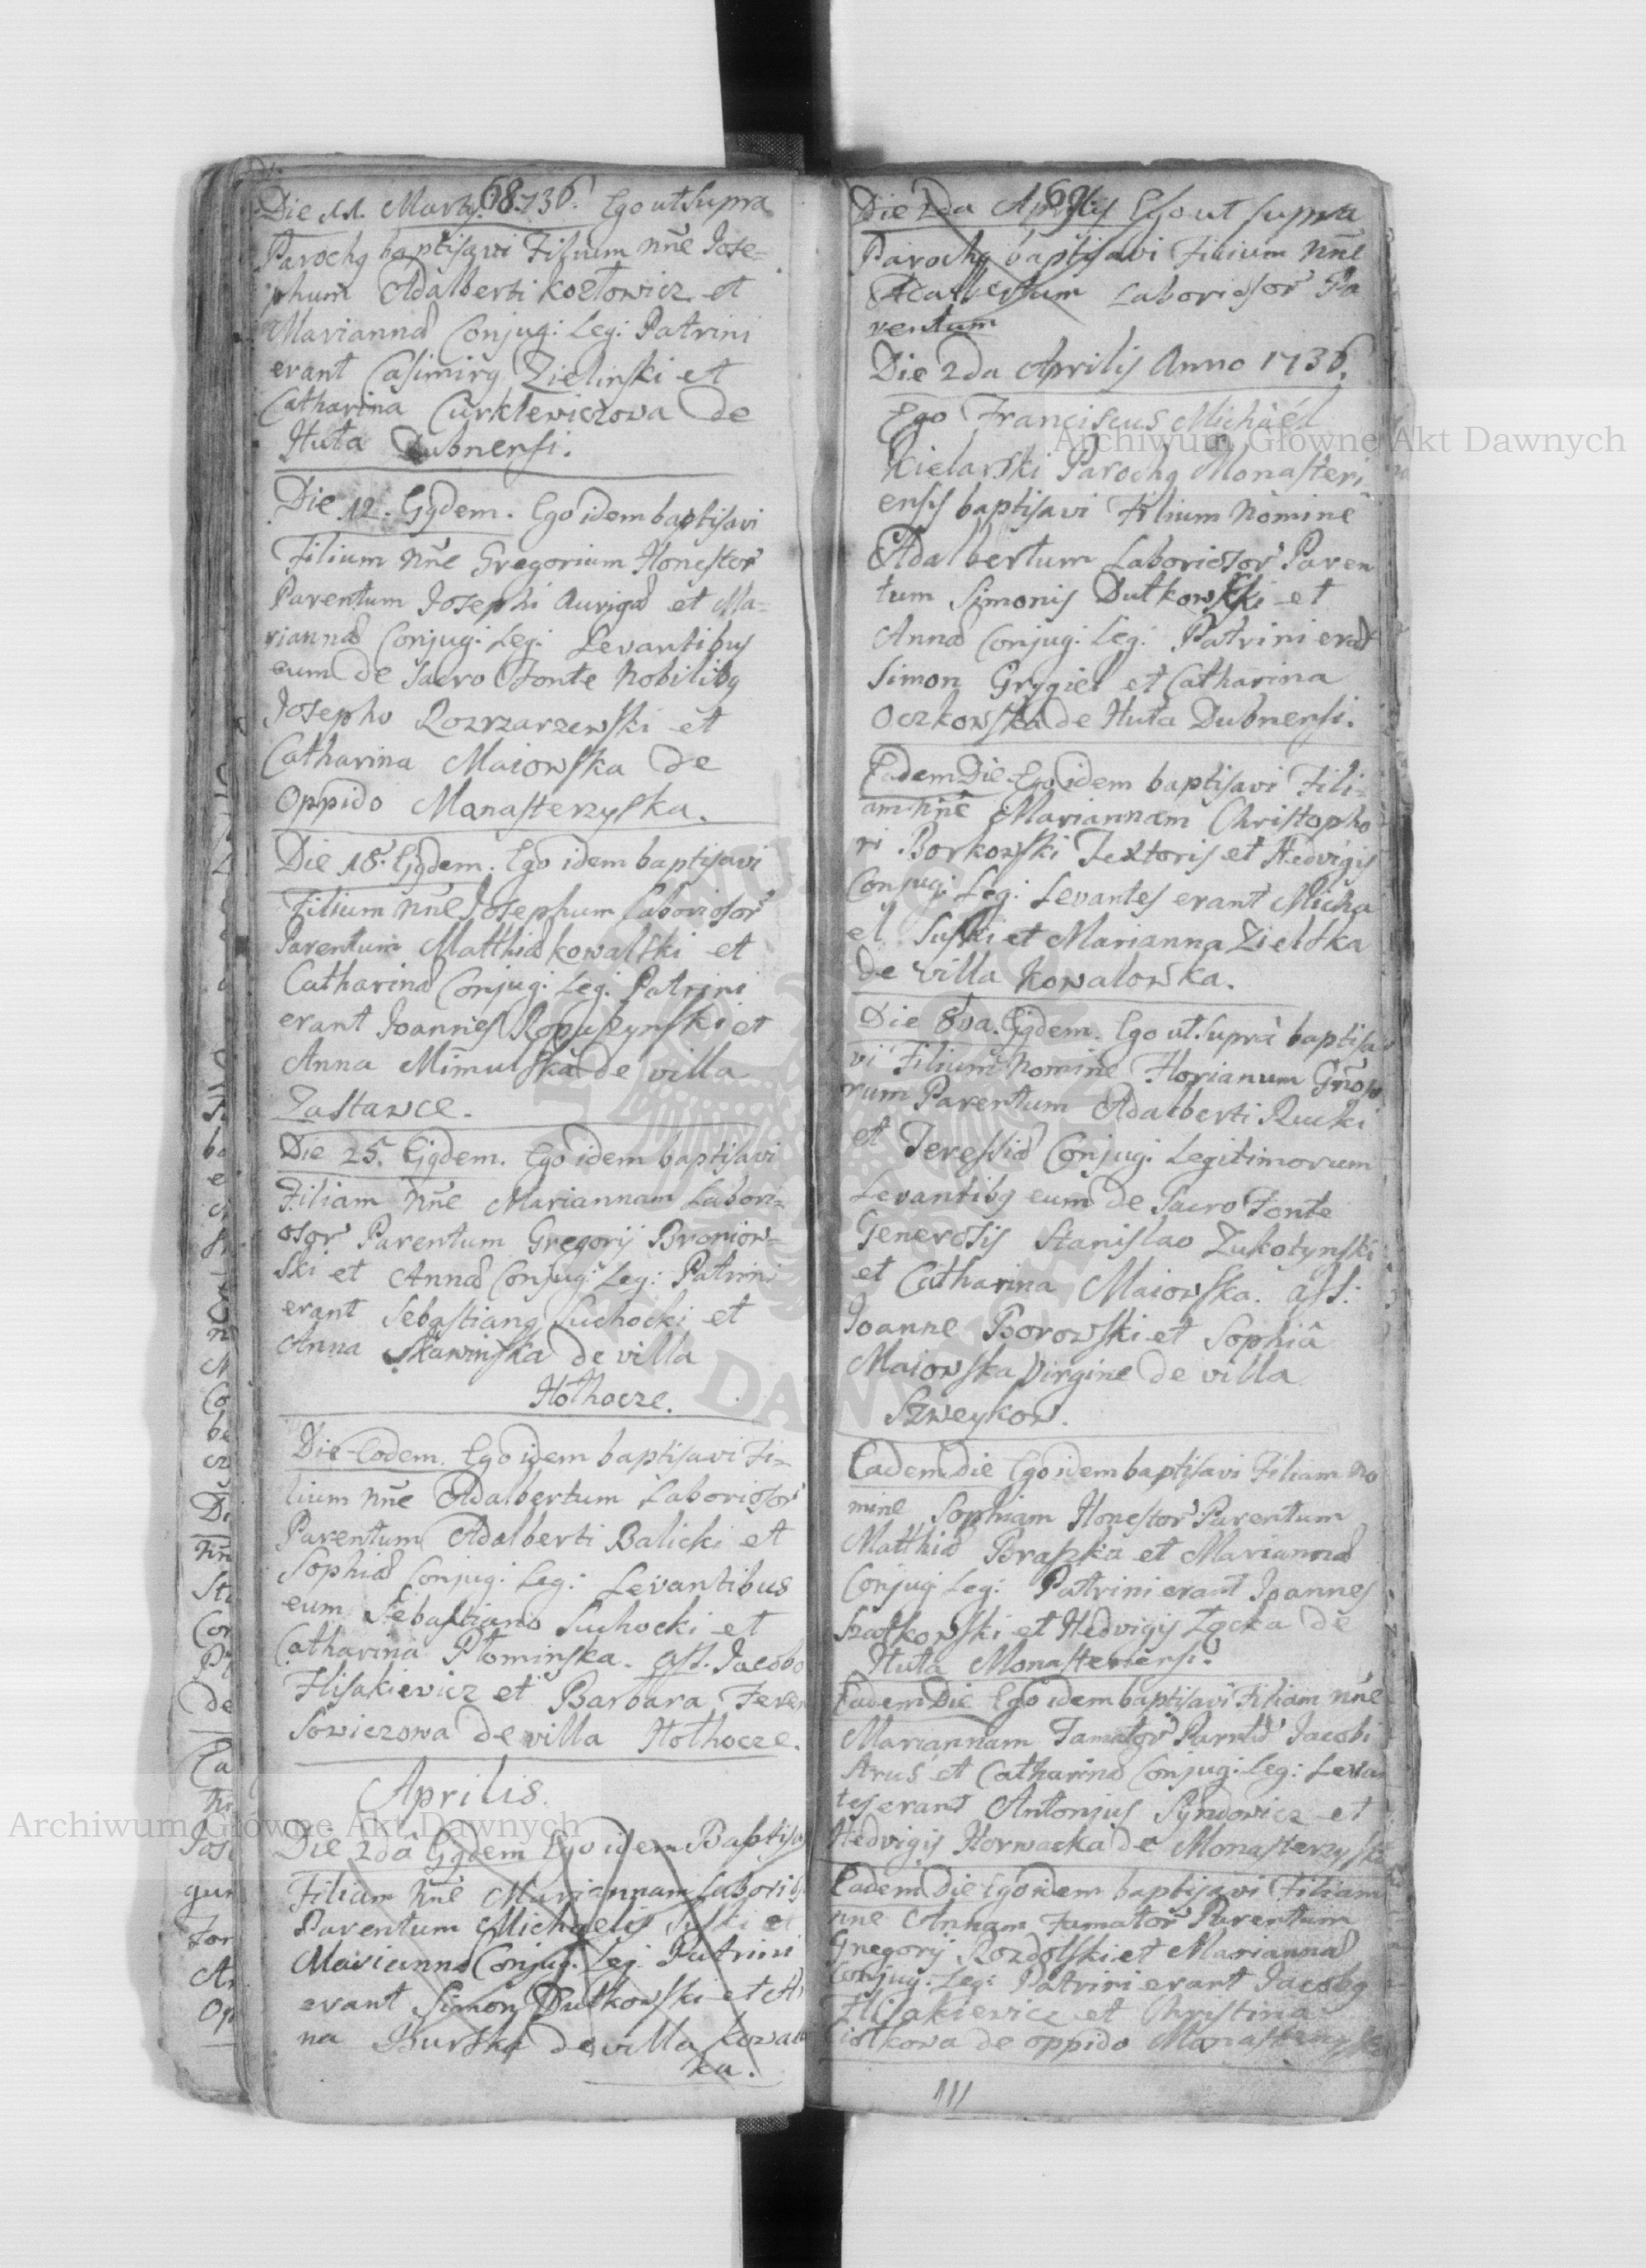 68.
Die 11. Martij 1736. Ego ut supra
Parochq baptisavi Filium nn̄e Jose=
phum Adalberti Kozłowicz et
Mariannæ Conjug: Leg: Patrini
erant Casimirq Zielinski et
Catharina Curklewiczowa de
Huta Dubnensi.
Die 12. Ejqdem. Ego idem baptisavi
Filium nn̄e Gregorium Honestor̃
Parentum Josephi Aurigæ et Ma=
riannæ Conjug: Leg: Levantibus
eum de Sacro Fonte Nobilibq
Josepho Rozrzarzewski et
Catharina Maiowska de
Oppido Monasterzyska.
Die 18. Ejqdem. Ego idem baptisavi
Filium nn̄e Josephum Laboriosor̃
Parentum Matthiæ Kowalski et
Catharinæ Conjug: Leg: Patrini
erant Joannes Ropuszynski et
Anna Mimulska de villa
Zastawce.
Die 25. Ejqdem. Ego idem baptisavi
Filiam nn̄e Mariannam Labori=
osor̃ Parentum Gregorij Broniow=
ski et Annæ Conjug: Leg: Patrini
erant Sebastianq Suchocki et
Anna Skawinska de villa
Hołhocze.
Die Eodem. Ego idem baptisavi Fi=
lium nn̄e Adalbertum Laboriosor̃
Parentum Adalberti Balicki et
Sophiæ Conjug: Leg: Levantibus
eum Sebastiano Suchocki et
Catharina Płominska. aſſ. Jacobo
Flisakiewicz et Barbara Feren
Sowiczowa de villa Hołhocze.
Aprilis.
Die 2dâ Ejqdem Ego idem Baptisa
Filiam nn̄e Mariannam Laborios
Parentum Michaelis Suski et
Mariannæ Conjug: Leg: Patrini
erant Simon Dutkowski et An
na Burska de villa Kowalo
ka.
69
Die 2da Aprilis Ego ut supra
Parochq baptisavi Filium nn̄e
Adalbertum Laboriosor̃ Pa
rentum
Die 2da Aprilis Anno 1736.
Ego Franciscus Michaël
Kielarski Parochq Monasteri
ensis baptisavi Filium Nominē
Adalbertum Laboriosor̃ Paren
tum Simonis Dutkowski et
Annæ Conjug: Leg: Patrini erāt
Simon Grygiel et Catharina
Oczkowska de Huta Dubnensi.
Eadem Die Ego idem baptisavi Fili=
am nn̄e Mariannam Christopho
ri Borkowski Textoris et Hedvigis
Conjug: Leg: Levantes erant Micha
el Suski et Marianna Zielska
de villa Kowalowka.
Die 8va. Ejqdem. Ego ut supra baptisa
vi Filium Nomine Florianum Gn̄oso
rum Parentum Adalberti Rucki
et Teressiæ Conjug: Legitimorum
Levantibq eum de Sacro Fonte
Generosis Stanislao Zukotynski
et Catharina Maiowska. aſſ:
Joanne Borowski et Sophiâ
Maiowska Virgine de villa
Szweykow.
Eadem Die Ego idem baptisavi Filiam No
mine Sophiam Honestor̃ Parentum
Matthiæ Braszka et Mariannæ
Conjug: Leg: Patrini erant Joannes
Szatkowski et Hedvigis Łącka de
Huta Monasteriensi.
Eadem Die Ego idem baptisavi Filiam nn̄e
Mariannam Famator̃ Parnt̃u Jacobi
Struś et Catharinæ Conjug: Leg: Levan
tes erant Antonius Syndowicz et
Hedvigis Horwacka de Monasterzyska
Eadem Die Ego idem baptisavi Filiam
nn̄e Annam Famator̃ Parentum
Gregorij Rozdolski et Mariannæ
Conjug: Leg: Patrini erant Jacobq
Flisakiewicz et Christina
Ciołkowa de oppido Monasterzyska
Archiwum Główne Akt Dawnych
Archiwum Główne Akt Dawnych